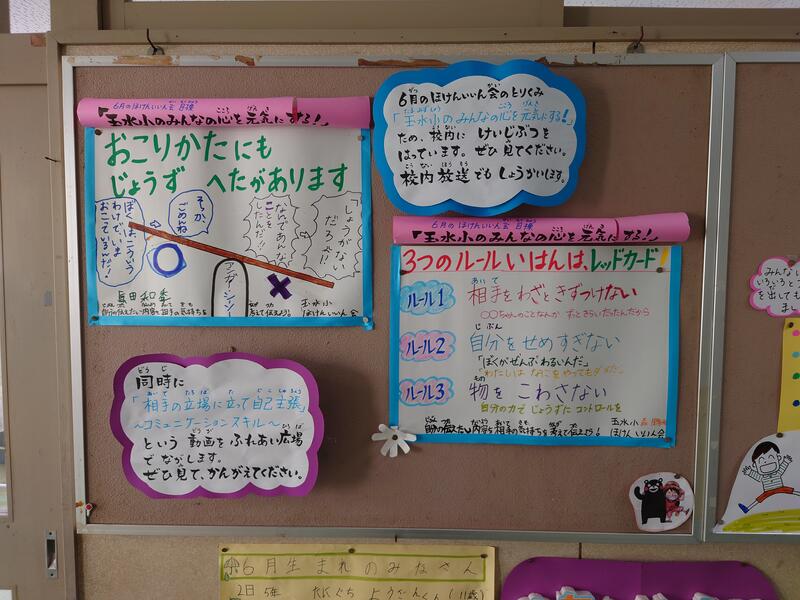 6月のほけんいいん会 目標
「玉水小のみんなの心を元気にする!」
おこりかたにも
じょうず へたがあります
ぼくは、こういう
わけで、いま
おこっているんだ!
そっか、
ごめんね
なんであんな
ことを
したんだ!!
しょうがない
だろ!!
アンガーシーソー
玉水小
ほけんいいん会
自分の伝えたい内容を相手の気持ちを考えて伝えよう!
6月のほけんいいん会のとりくみ
「玉水小のみんなの心を元気にする!」
ため、校内に けいじぶつを
はっています。ぜひ見てください。
校内放送でもしょうかいします。
6月のほけんいいん会 目標
「玉水小のみんなの心を元気にする!」
3つのルールいはんは、レッドカード!
ルール1 相手をわざときずつけない
〇〇ちゃんのことなんか ずっときらいだったんだから
ルール2 自分をせめすぎない
「ぼくがぜんぶわるいんだ」
「わたしは なにをやってもダメだ」
ルール3 物をこわさない
自分の力でじょうずにコントロールを
自分の伝えたい内容を相手の気持ちを考えて伝えよう!
玉水小
ほけんいいん会
同時に
「相手の立場に立って自己主張」
~コミュニケーションスキル~
という動画をふれあい広場
でながします。
ぜひ見て、かんがえてください。
みんな
いろいろと
を出しても
6月生まれのみなさん
2日 5年